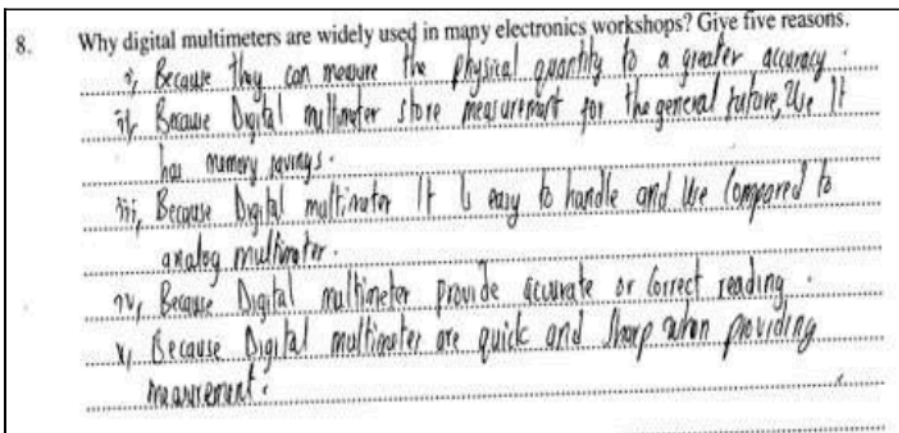 8. Why digital multimeters are widely used in many electronics workshops? Give five reasons.
i, Because they can measure the physical quantity to a greater accuracy.
ii, Because Digital multimeter store measurement for the general future, Use It
has memory savings.
iii, Because Digital multimeter It is easy to handle and Use Compared to
analog multimeter.
iv, Because Digital multimeter provide accurate or Correct reading.
v, Because Digital multimeter are quick and sharp when providing
measurement.